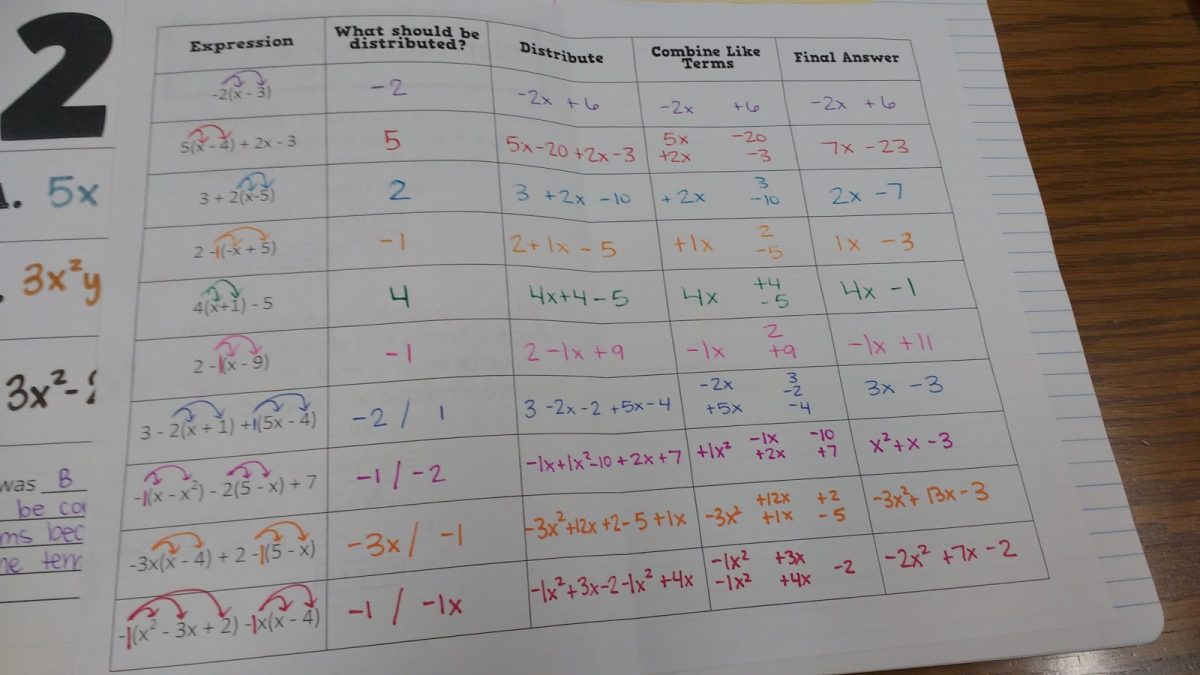 2
. 5x
3x²y
3x²-
was B
be
ms bec
ne
Expression What should be distributed? Distribute Combine Like Terms Final Answer
-2(x - 3) -2 -2x +6 -2x +6 -2x +6
5(x - 4) + 2x - 3 5 5x-20+2x-3 5x -20 7x -23
+2x -3
3 + 2(x-5) 2 3 +2x -10 +2x 3 2x -7
-10
2 -1(-x + 5) -1 2+1x -5 +1x 2 1x -3
-5
4(x+1) - 5 4 4x+4-5 4x +4 4x -1
-5
2 -1(x - 9) -1 2-1x+9 -1x 2 -1x +11
+9
3 - 2(x + 1) +1(5x - 4) -2 / 1 3 -2x -2 +5x -4 -2x 3 3x -3
-2
+5x -4
-1(x - x²) - 2(5 - x) + 7 -1 / -2 -1x+1x²-10+2x+7 +1x² -1x -10 x²+x-3
+2x +7
-3x(x - 4) + 2 -1(5 - x) -3x / -1 -3x²+12x+2-5+1x -3x² +12x +2 -3x²+13x-3
+1x -5
-1(x² - 3x + 2) -1x(x - 4) -1 / -1x -1x²+3x-2-1x²+4x -1x² +3x -2 -2x²+7x-2
-1x² +4x